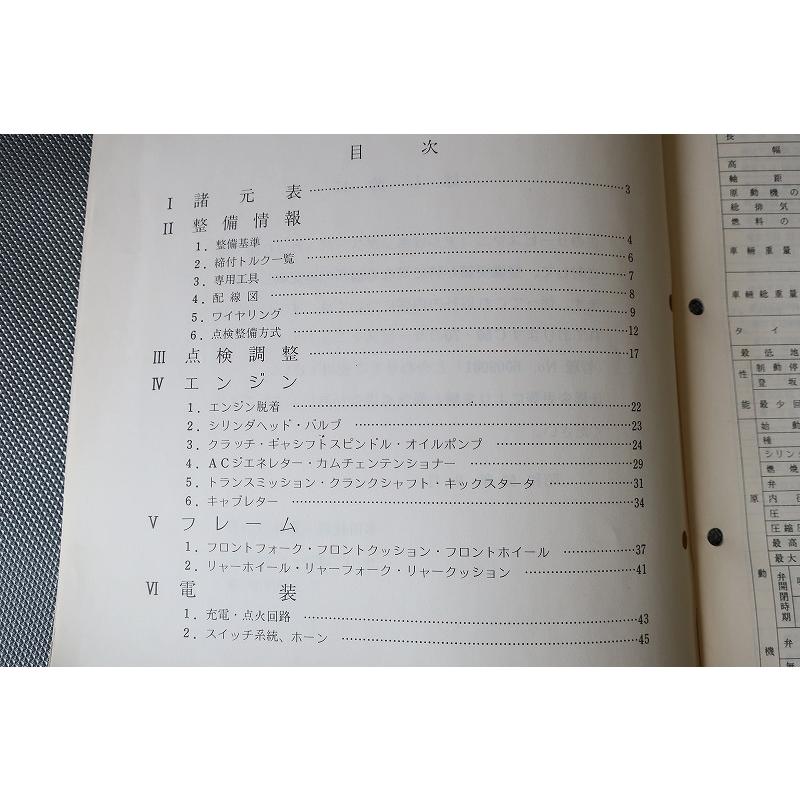 目次
I 諸元表 3
II 整備情報
1. 整備基準 4
2. 締付トルク一覧 6
3. 専用工具 7
4. 配線図 8
5. ワイヤリング 9
6. 点検整備方式 12
III 点検調整 17
IV エンジン
1. エンジン脱着 22
2. シリンダヘッド・バルブ 23
3. クラッチ・ギャシフトスピンドル・オイルポンプ 24
4. ACジエネレター・カムチェンテンショナー 29
5. トランスミッション・クランクシャフト・キックスタータ 31
6. キャブレター 34
V フレーム
1. フロントフォーク・フロントクッション・フロントホイール 37
2. リャーホイール・リャーフォーク・リャークッション 41
VI 電装
1. 充電・点火回路 43
2. スイッチ系統、ホーン 45
長
幅
高
軸距
原動機の
総排気
燃料の
車輛重量
車輛総重量
タイ
最低地
性能
制動停
登坂
最少回
原動機
始動
種
シリン
燃焼
弁
内径
圧
圧縮
最高
最大
弁開閉時期
弁